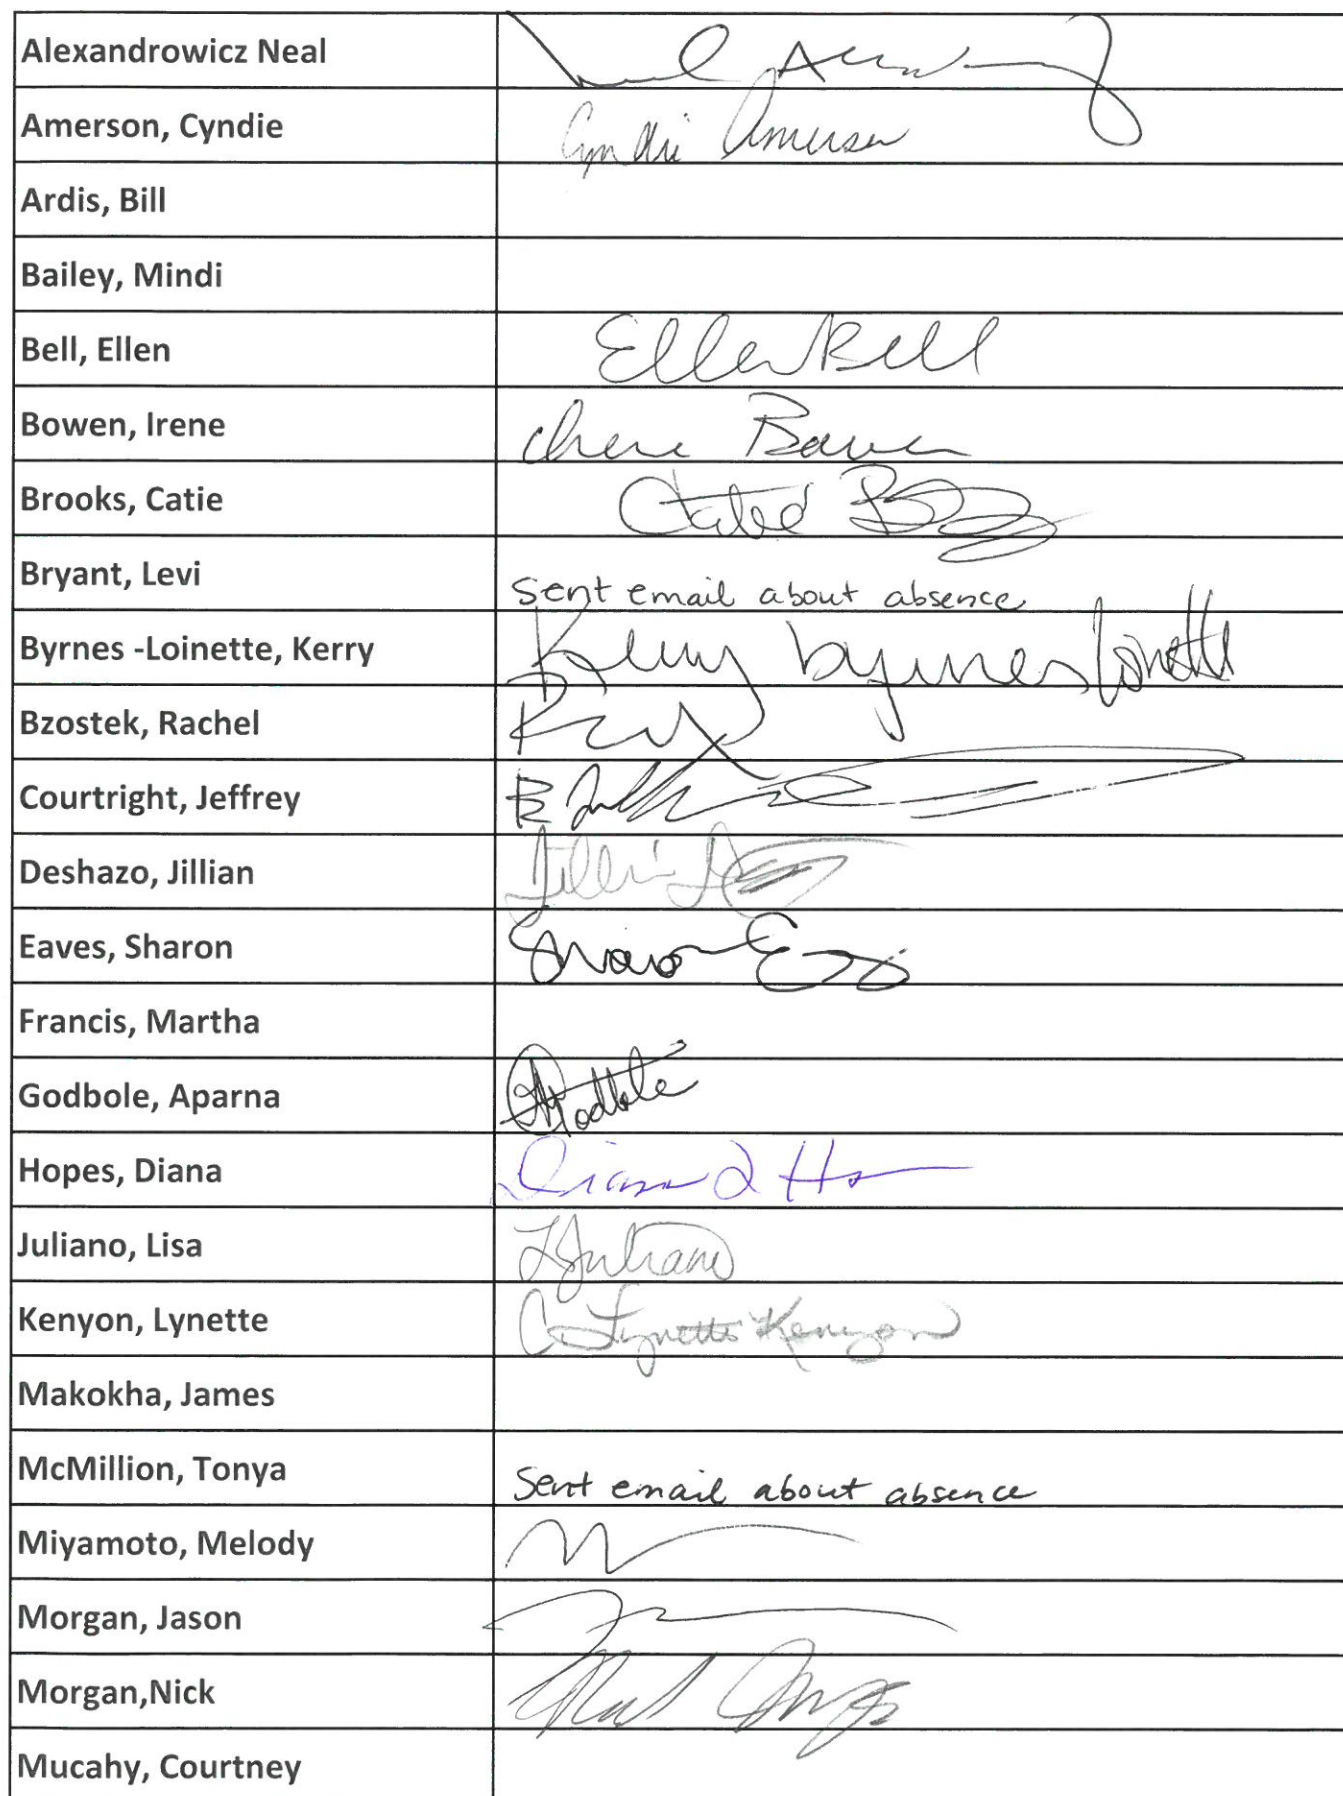 Alexandrowicz Neal
Amerson, Cyndie Cyndie Amerson
Ardis, Bill
Bailey, Mindi
Bell, Ellen Ellen Bell
Bowen, Irene Irene Bowen
Brooks, Catie
Bryant, Levi Sent email about absence
Byrnes -Loinette, Kerry Kerry byrnes Loinette
Bzostek, Rachel
Courtright, Jeffrey
Deshazo, Jillian
Eaves, Sharon Sharon
Francis, Martha
Godbole, Aparna Godbole
Hopes, Diana Diana
Juliano, Lisa L Juliano
Kenyon, Lynette C. Lynette Kenyon
Makokha, James
McMillion, Tonya Sent email about absence
Miyamoto, Melody
Morgan, Jason
Morgan,Nick
Mucahy, Courtney